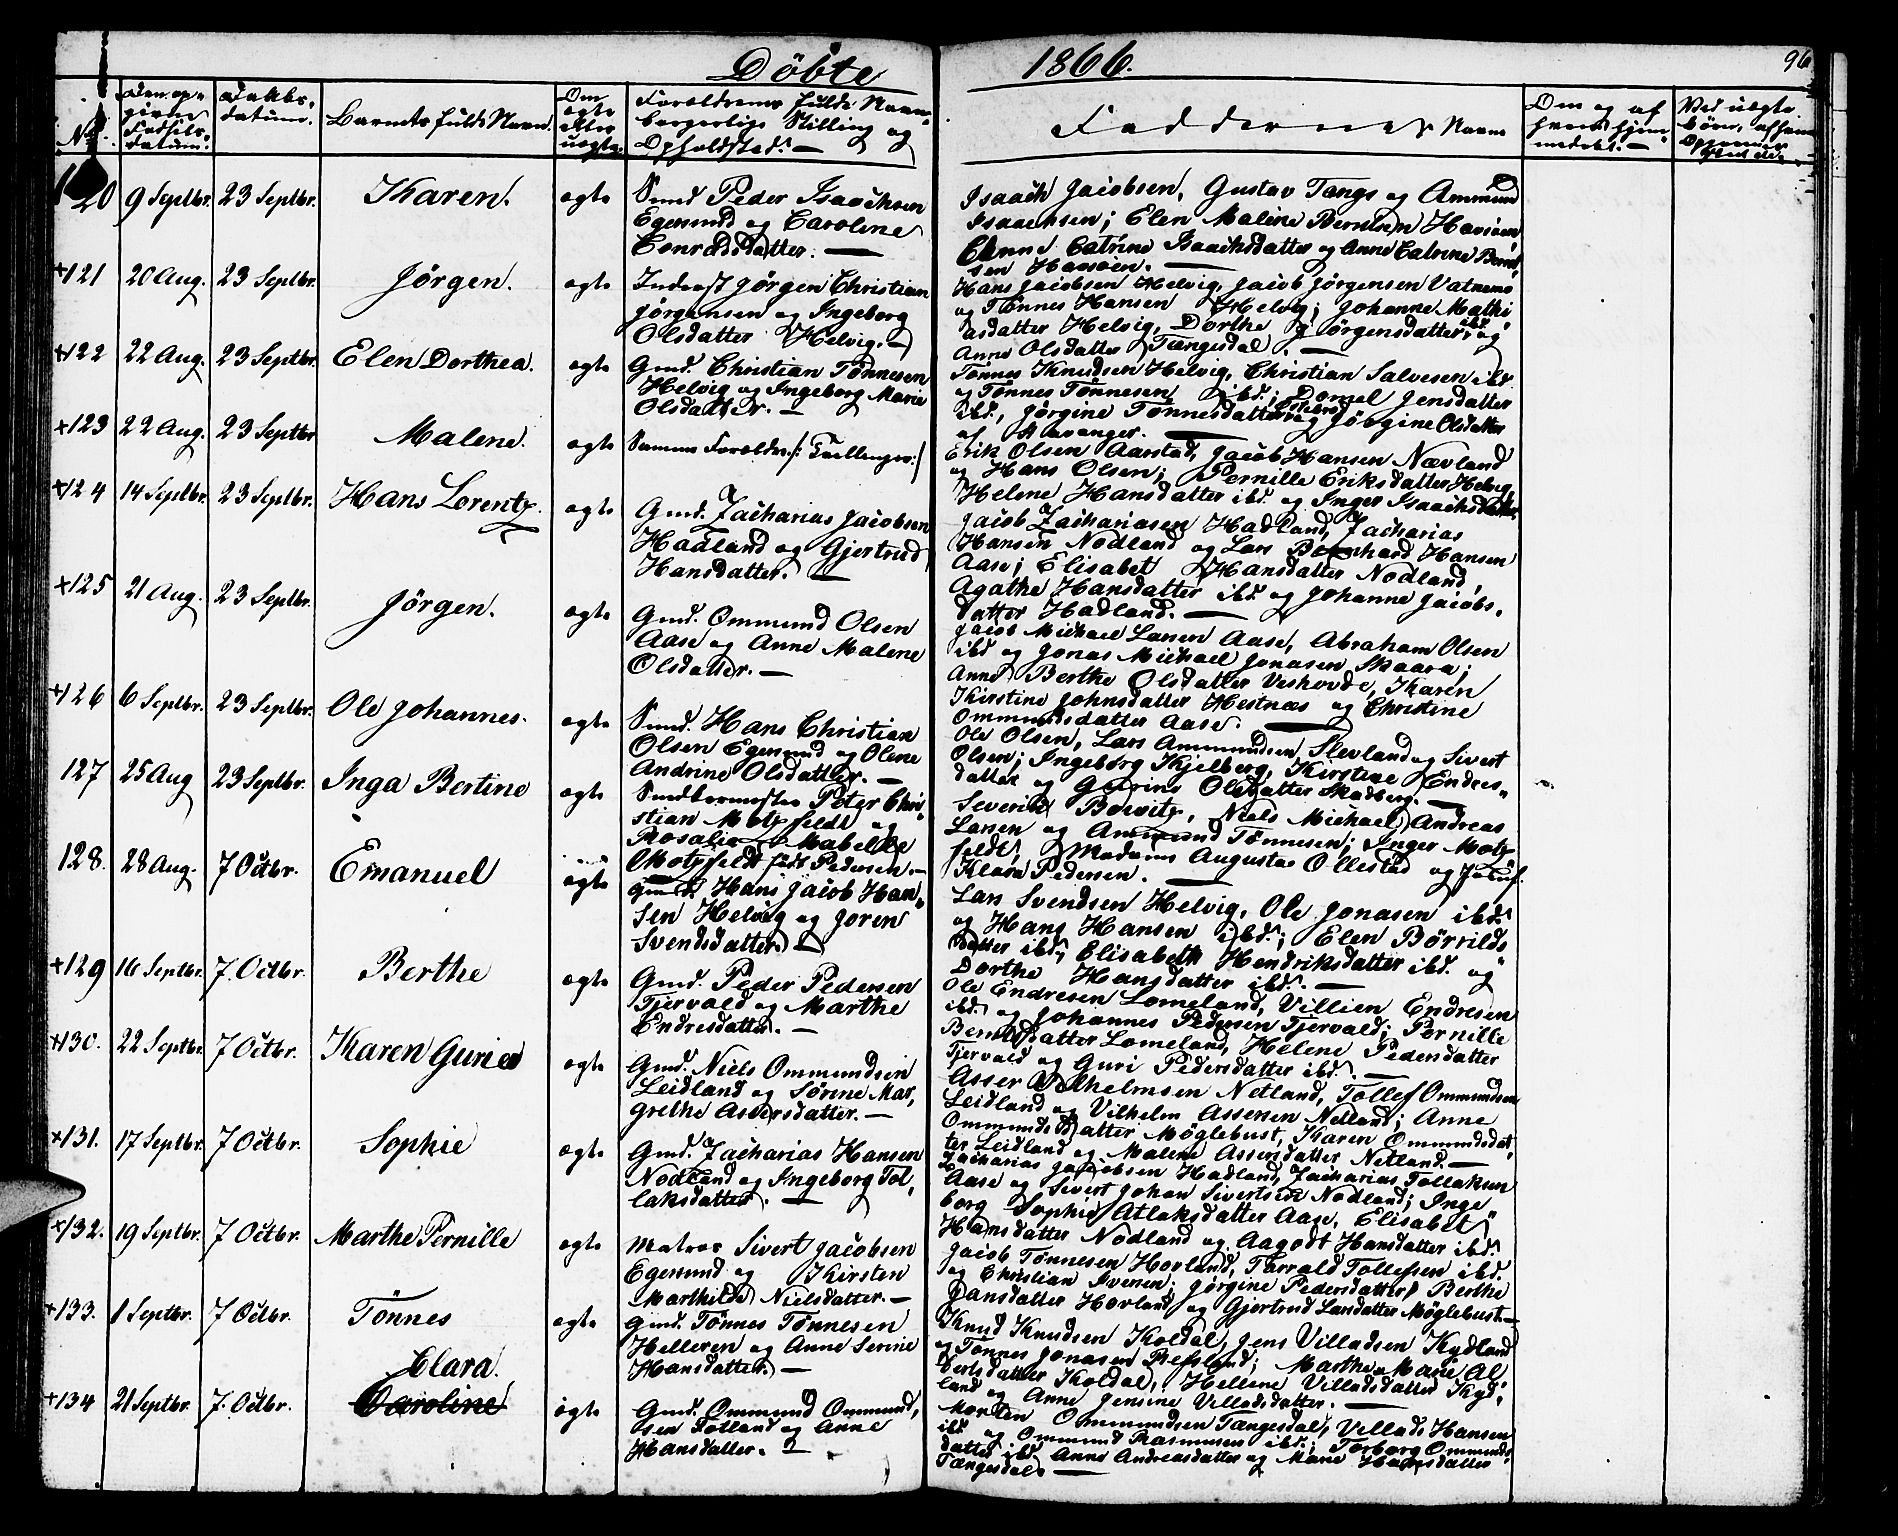 Döbte 1866. 96
No.
Den op-
givne
Födsels-
datum.
Daabs-
datum.
Barnets fulde Navn.
Om
ægte
eller
uægte
Forældrenes fulde Navn,
borgerlige Stilling og
Opholdsted. —
Faddernes Navne
Om og af
hvem hjem-
medøbt. —
Ved uægte
börn,
120 9 Septbr. 23 Septbr. Karen. ægte
Smed Peder Isaachsen
Egersund og Caroline
Conradsdatter. —
Isaach Jacobsen, Gustav Tengs og Ammund
Isaachsen; Elen Maline Berntsen Havsöen,
Anne Catrine Isaachsdatter og Anne Catrine Bernt-
sen Havsöen. —
+121 20 Aug. 23 Septbr. Jörgen. ægte
Inderst Jörgen Christian
Jörgensen og Ingeborg
Olsdatter Helvig. —
Hans Jacobsen Helvig, Jacob Jörgensen Vatnemo
og Tönnes Hansen Helvig; Johanne Mathi-
asdatter Helvig, Dorthe Jörgensdatter ibd. og
Anne Olsdatter Tængesdal. —
+122 22 Aug. 23 Septbr. Elen Dorthea. ægte
Gmd. Christian Tönnesen
Helvig og Ingeborg Marie
Olsdatter. —
Tönnes Knudsen Helvig, Christian Salvesen ibd.
og Tönnes Tönnesen ibd.; Dorthel Jensdatter
ibd., Jörgine Tönnesdatter og Jörgine Olsdatter
af Stavanger. —
+123 22 Aug. 23 Septbr Malene. ægte
Samme Forældre /: Tvillinger :/
Erik Olsen Aarstad, Jacob Hansen Nævland
og Hans Olsen; Pernille Eriksdatter Helvig,
Helene Hansdatter ibd. og Inger Isaachsdatter.
+124 14 Septbr. 23 Septbr. Hans Lorentz. ægte
Gmd. Zacharias Jacobsen
Hadland og Gjertrud
Hansdatter. —
Jacob Zachariasen Hadland, Zacharias
Hansen Nodland og Lars Bernhard Hansen
Aase; Elisabet Hansdatter Nodland,
Agathe Hansdatter ibd. og Johanne Jacobs-
datter Hadland. —
+125 21 Aug. 23 Septbr. Jörgen. ægte
Gmd. Ommund Olsen
Aase og Anne Malene
Olsdatter. —
Jacob Michael Larsen Aase, Abraham Olsen
ibd. og Jonas Michael Jonasen Skaara;
Anne Berthe Olsdatter Veshovde, Karen
Kirstine Johnsdatter Hestnæs og Christine
Ommundsdatter Aase. —
+126 6 Septbr. 23 Septbr. Ole Johannes. ægte
Smd. Hans Christian
Olsen Egersund og Olene
Andrine Olsdatter. —
Ole Olsen, Lars Ammundsen Slevland og Sivert
Olsen; Ingeborg Kjelberg, Kirstine Endres-
datter og Gurine Olsdatter Skadberg. —
127 25 Aug 23 Septbr. Inga Bertine ægte
Smedkermester Peter Chri-
stian Motzfeldt og
Rosalie Mabelle
Motzfeldt födt Pedersen. —
Severin Bowitz, Niels Michael Andreas
Larsen og Ammund Tönnesen; Inger Motz-
feldt, Madame Augusta Ollestad og Jomf.
Klara Pedersen. —
128. 28 Aug. 7 Octbr. Emanuel ægte
Gmd. Hans Jacob Han-
sen Helvig og Joren
Svendsdatter. —
Lars Svendsen Helvig, Ole Jonasen ibd.
og Hans Hansen ibd.; Elen Börrilds-
datter ibd., Elisabeth Hendriksdatter ibd. og
Dorthe Hansdatter ibd. —
+129 16 Septbr. 7. Octbr. Berthe ægte
Gmd. Peder Pedersen
Tjervald og Marthe
Endresdatter. —
Ole Endresen Lomeland, Villien Endresen
ibd. og Johannes Pedersen Tjervald; Pernille
Berntsdatter Lomeland, Helene Pedersdatter
Tjervald og Guri Pedersdatter ibd. —
+130. 22 Septbr. 7 Octbr. Karen Gurine ægte
Gmd. Niels Ommundsen
Leidland og Sörine Mar-
grethe Assersdatter. —
Asser Vilhelmsen Netland, Tollef Ommundsen
Leidland og Vilhelm Assersen Netland; Anne
Ommundsdatter Möglebust, Karen Ommundsdat-
ter Leidland og Malene Assersdatter Netland. —
+131. 17 Septbr. 7 Octbr. Sophie ægte
Gmd. Zacharias Hansen
Nodland og Ingeborg Tol-
laksdatter. —
Zacharias Jacobsen Hadland, Zacharias Tollaksen
Aase og Sivert Johan Sivertsen Nodland; Inge-
borg Sophie Atlaksdatter Aase, Elisabet
Hansdatter Nodland og Aagodt Hansdatter ibd.
+132. 19 Septbr. 7 Octbr. Marthe Pernille ægte
Matros Sivert Jacobsen
Egersund og Kirsten
Marthilde Nielsdatter. —
Jacob Tönnesen Hovland, Tarrald Tollefsen ibd.
og Christian Iversen; Jörgine Pedersdatter, Berthe
Hansdatter Hovland og Gjertrud Larsdatter Möglebust —
+133. 1 Septbr. 7 Octbr. Tönnes ægte
Gmd. Tönnes Tönnesen
Helleren og Anne Serine
Hansdatter. —
Knud Knudsen Koldal, Jens Villadsen Kydland
og Tönnes Jonasen Refsland; Marthe Marie Al-
bertsdatter Koldal, Hellene Villadsdatter Kyd-
land og Anne Jensine Villadsdatter. —
+134 21 Septbr. 7. Octbr. Clara. Caroline ægte
Gmd. Ommund Ommund-
sen Fotland og Anne
Hansdatter. —
Morten Ommundsen Tængesdal, Villads Hansen
ibd. og Ommund Rasmusen ibd.; Torborg Ommunds-
datter ibd. Anne Andreasdatter og Marie Hansdatter
Tængesdal. —